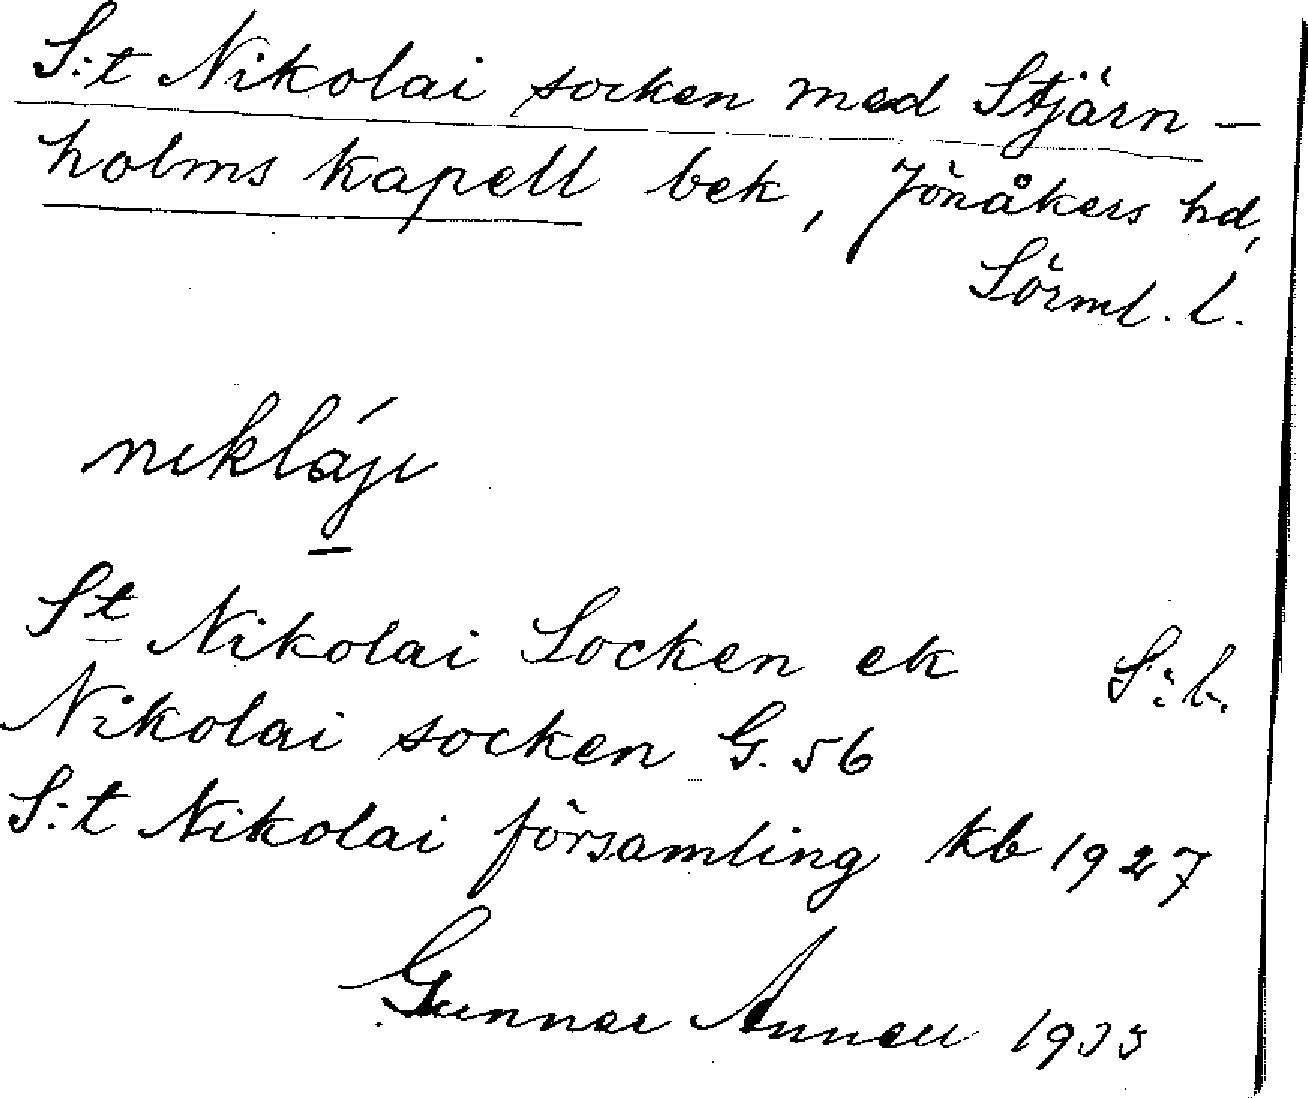 S:t Nikolai socken med Stjärn-
holms kapell bek, Jönåkers hd,
Sörml. l.
nikláji
St Nikolai Socken ek S:b.
Nikolai socken G. 56
S:t Nikolai församling kb 1927
Gunnar 1933